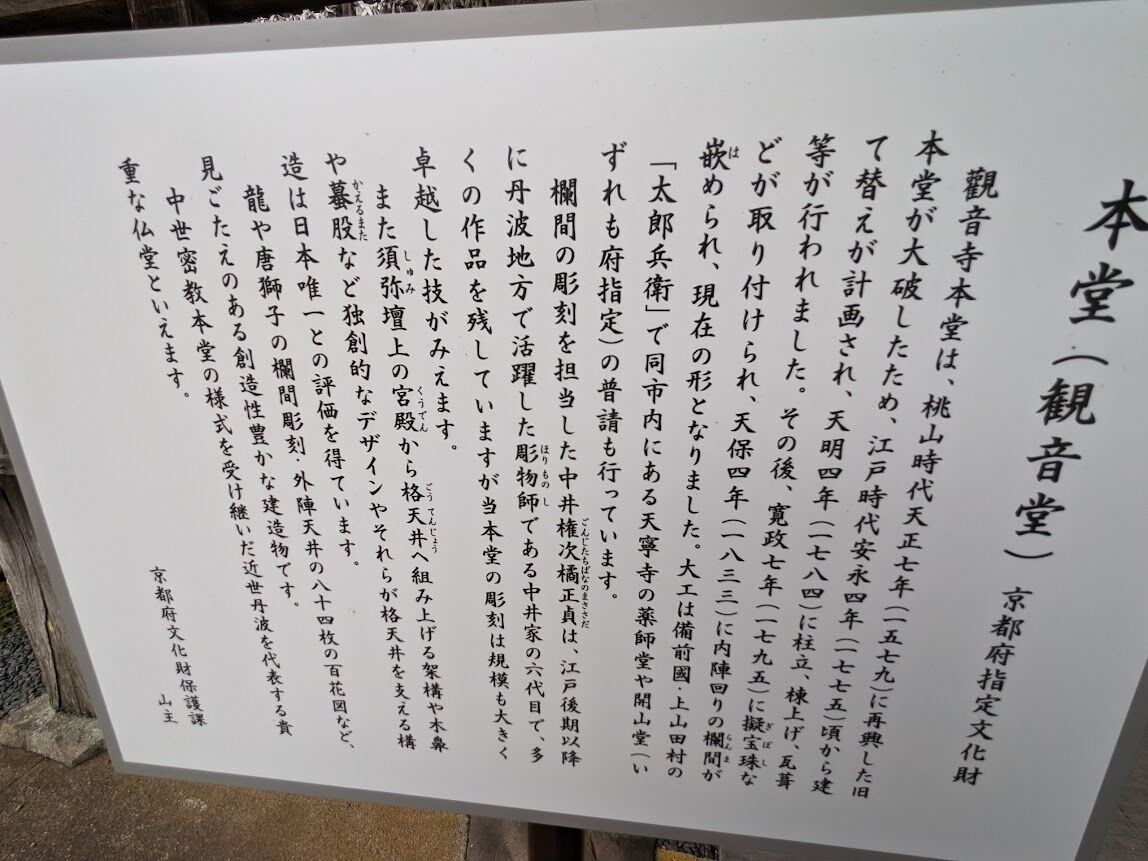 本堂（観音堂） 京都府指定文化財
觀音寺本堂は、桃山時代天正七年（一五七九）に再興した旧
本堂が大破したため、江戸時代安永四年（一七七五）頃から建
て替えが計画され、天明四年（一七八四）に柱立、棟上げ、瓦葺
等が行われました。その後、寛政七年（一七九五）に擬宝珠な
どが取り付けられ、天保四年（一八三三）に内陣回りの欄間が
嵌められ、現在の形となりました。大工は備前國・上山田村の
「太郎兵衛」で同市内にある天寧寺の薬師堂や開山堂（い
ずれも府指定）の普請も行っています。
欄間の彫刻を担当した中井権次橘正貞は、江戸後期以降
に丹波地方で活躍した彫物師である中井家の六代目で、多
くの作品を残していますが当本堂の彫刻は規模も大きく
卓越した技がみえます。
また須弥壇上の宮殿から格天井へ組み上げる架構や木鼻
や蟇股など独創的なデザインやそれらが格天井を支える構
造は日本唯一との評価を得ています。
龍や唐獅子の欄間彫刻・外陣天井の八十四枚の百花図など、
見ごたえのある創造性豊かな建造物です。
中世密教本堂の様式を受け継いだ近世丹波を代表する貴
重な仏堂といえます。
京都府文化財保護課
山主
ぎぼし
らんま
は
ごんじたちばなのまささだ
ほりものし
しゅみ
くうでん
ごうてんじょう
かえるまた